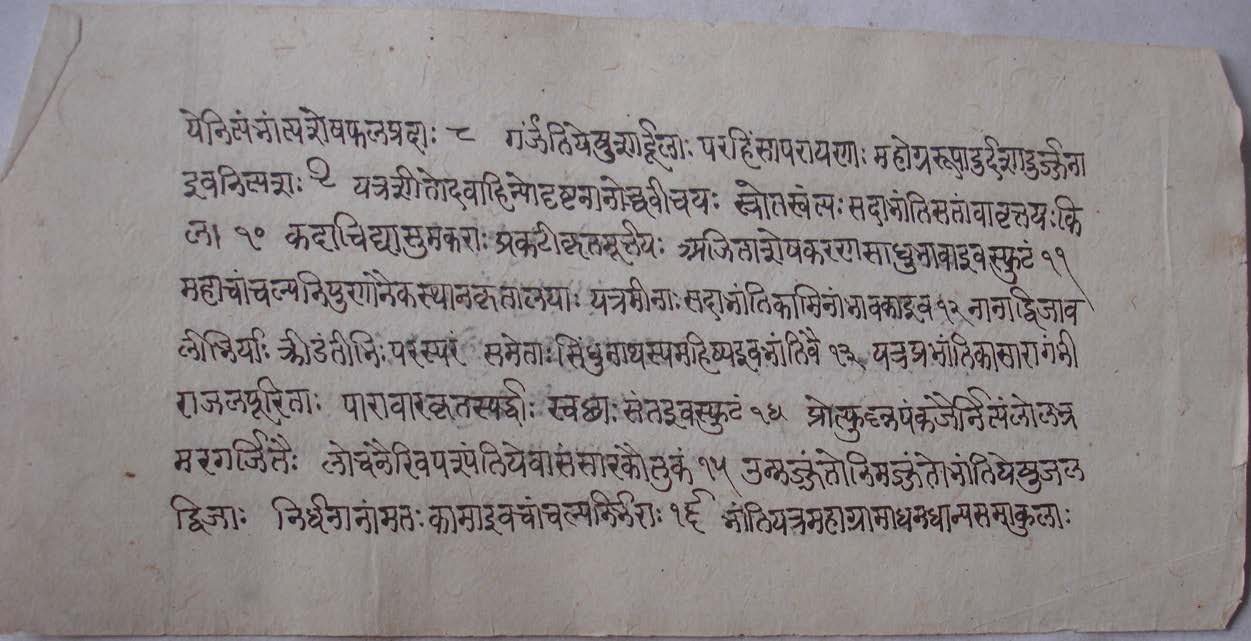 येनित्यंभांत्यशेषफलप्रदाः ८ गर्जंतियेषुशार्दूलाः परहिंसापरायणाः महोग्ररूपादुर्दशादुर्ज्जना
इवनित्यशः ९ यत्रशीतोदवाहिन्योदृष्टनानोच्चवीचयः स्रोतस्वंत्यः सदाभांतिसतांवावृत्तयःकि
ला १० कदाचिद्यासुमकराः प्रकटीकृतमूर्त्तयः अजिताशेषकरणसाधुभावाइवस्फुटं ११
महाचांचल्यनिपुणानैकस्थानकृतालयाः यत्रमीनाः सदाभांतिकामिनांभावकाइव १२ नानाद्विजाव
लीभिर्याः क्रीडंतीभिः परस्परं समेताः सिंधुनाथस्यमहिष्यइवभांतिवै १३ यत्रप्रभांतिकासारागंभी
राजलपूरिताः पारावारकृतस्पर्द्धाः स्वछाः संतइवस्फुटं १४ प्रोत्फुल्लपंकजैर्नित्यंलोलभ्र
मरगर्जितैः लोचनैरिवपश्यंतियेवासंसारकौतुकं १५ उन्मज्जंतोनिमज्जंतोभांतियेषुजल
द्विजाः निर्धनानांमतः कामाइवचांचल्यनिर्भराः १६ भांतियत्रमहाग्रामाधनधान्यसमाकुलाः